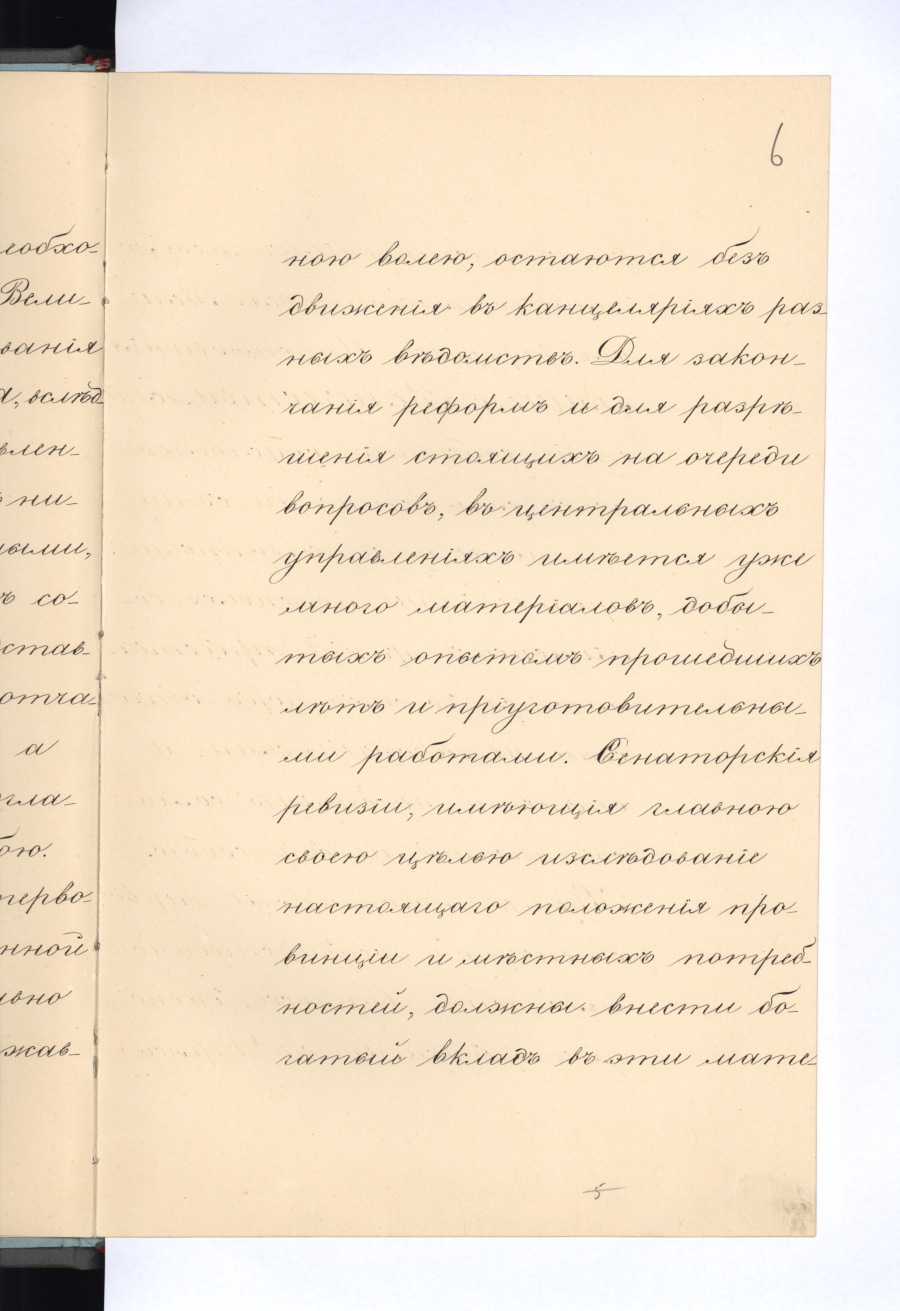 еобхо-
Вели-
ованія
а, вслѣд-
влен-
ъ ни-
ными,
ъ со-
став-
отча-
а
гла-
бою.
перво-
нной
ивно
жав-
6
ною волею, остаются безъ
движенія въ канцеляріяхъ раз-
ныхъ вѣдомствъ. Для закон-
чанія реформъ и для разрѣ-
шенія стоящихъ на очереди
вопросовъ, въ центральныхъ
управленіяхъ имѣется уже
много матеріаловъ, добы-
тыхъ опытомъ прошедшихъ
лѣтъ и пріуготовительны-
ми работами. Сенаторскія
ревизіи, имѣющія главною
своею цѣлью изслѣдованіе
настоящаго положенія про-
винціи и мѣстныхъ потреб-
ностей, должны внести бо-
гатый вкладъ въ эти мате-
5